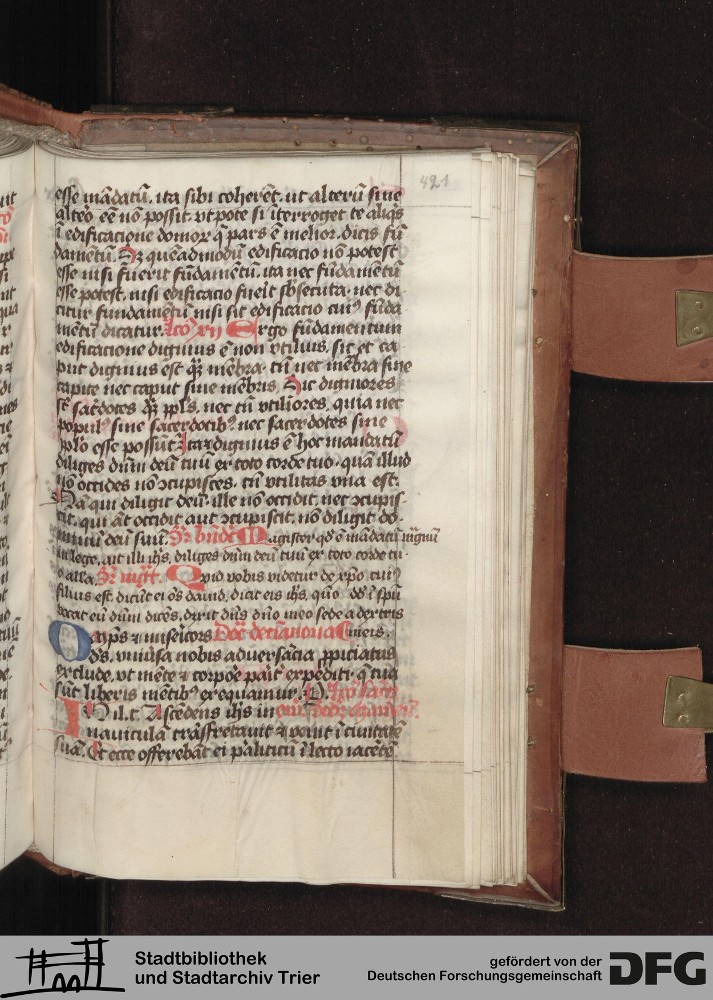 421
esse mādatū. ita sibi coherēt. ut alterū sine
altēo eē nō possit. vt pote si īterroget te aliqͥs
ī edificacione domoꝝ q̄ pars ē melior. dicis fū
damentū. Sꝫ quēadmodū edificatio nō potest
esse nisi fuerit fūdamētū. ita nec fūdamētū
esse potest. nisi edificacio fuēit sbsecuta. nec di
citur fundamētū nisi sit edificatio cuiꝰ fūda
mētū dicatur. Lc̄o xvii Ergo fūdamentum
edificatione dignius ē non vtilius. sic et ca
put dignius est qꝫ mēbra. tn̄ nec mēbra sine
capite nec caput sine mēbris. Sic digniores
st̄ sacēdotes qꝫ ppl̄s. nec tn̄ vtiliores. quia nec
populꝰ sine sacerdotibꝰ. nec sacerdotes sine
pplo esse possūt. Itaꝫ dignius ē hoc mandatū
diliges dūm deū tuū ex toto corde tuo. quā illud
nō occides nō ↄcupisces. tn̄ vtilitas vna est.
Nā qui diligit deū. ille nō occidit. nec ↄcupis
cit. qui āt occidit aut ↄcupiscit. nō diligit do
minū deū suū. Sr̄ bn̄dc̄ Magister qd̄ ē mādatū mgnū
in lege. ait illi ihs̄. diliges dūm deū tuū ex toto corde tu
o alla. Sr̄ mgt̄. Quid vobis videtur de xp̄o cuiꝰ
filius est. dicūt ei oēs dauid. dicit eis ihs̄. quō dd̄ ī spū
vocat eū dūm dicēs. dixit dn̄s dn̄o meo sede a dextris
Oatp̄s ⁊ misēicors Doc̄ decīanona Ⅽmeis.
ds̄. vniūsa nobis aduersācia ppiciatus
exclude. vt mēte ⁊ corpōe pait̄ expediti. q̄ tua
sūt liberis mētibꝰ exequamur. P.
In il. t. Ascēdens ihs̄ in
nauiculā trāsfretauit ⁊ venit ī ciuitatē
suā. Et ecce offerebāt ei paliticū ī lecto iacētē
Stadtbibliothek
und Stadtarchiv Trier
gefördert von der
Deutschen Forschungsgemeinschaft
DFG